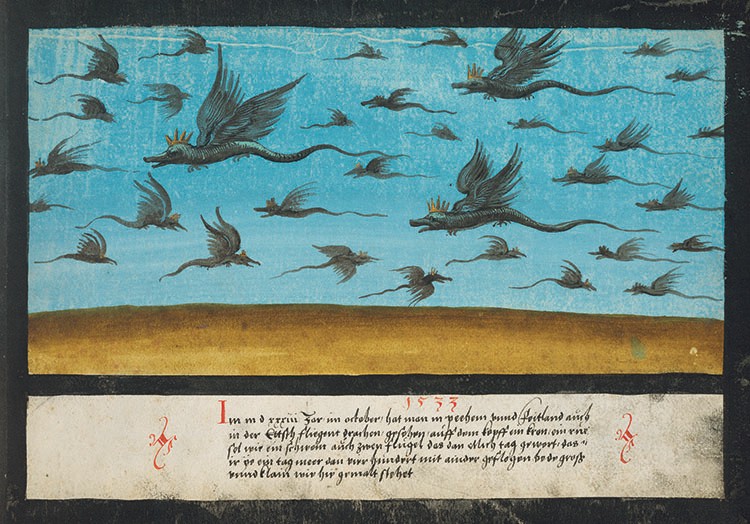 1533
Im m d xxxiii Jar im october, hat man in pechem vnnd Foitland auch
in der Eittsch fliegent drachen gesehen, auff dem kopff ein kron, ein rüe=
sel wie ein schwein auch zwen flügel das dan etlich tag gewert, das
ir vf ein tag meer dan vier hundert mit ainder geflogen bede groß
vnnd klain wie hie gemalt stehet